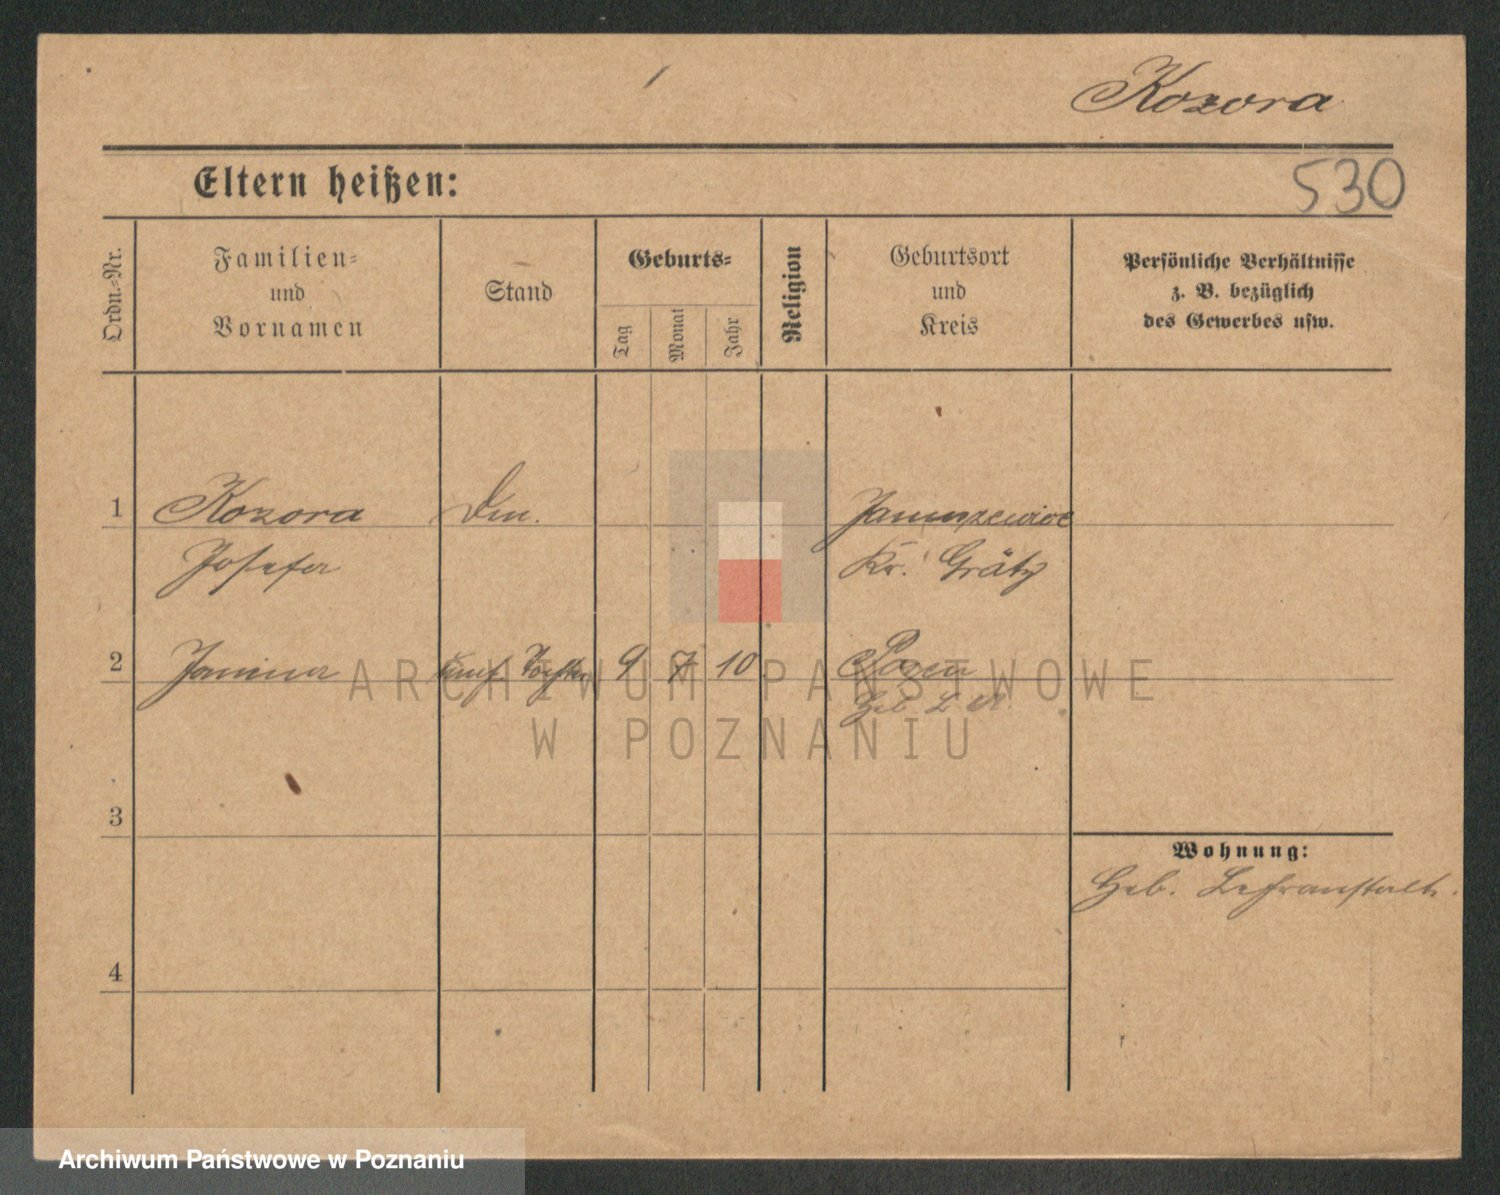 Kozora
530
Eltern heißen:
Ordn.-Nr.
Familien-
und
Vornamen
Stand
Geburts-
Tag
Monat
Jahr
Religion
Geburtsort
und
Kreis
Persönliche Verhältnisse
z. B. bezüglich
des Gewerbes usw.
1 Kozora
Josefa
Kr. Grätz
2 Janina 9 7 10 Posen
3
Wohnung:
Heb. Lehranstalt.
4
ARCHIWUM PAŃSTWOWE
W POZNANIU
Archiwum Państwowe w Poznaniu